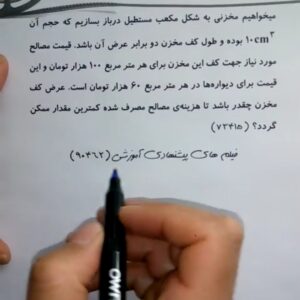 میخواهیم مخزنی به شکل مکعب مستطیل درباز بسازیم که حجم آن
۱۰cm³ بوده و طول کف مخزن دو برابر عرض آن باشد. قیمت مصالح
مورد نیاز جهت کف این مخزن برای هر متر مربع ۱۰۰ هزار تومان و این
قیمت برای دیوارهها در هر متر مربع ۶۰ هزار تومان است. عرض کف
مخزن چقدر باشد تا هزینهی مصالح مصرف شده کمترین مقدار ممکن
گردد؟ (۷۳۴۱۵)
فیلم های پیشنهادی آموزشی (۹۰۴۶۲)
OWN